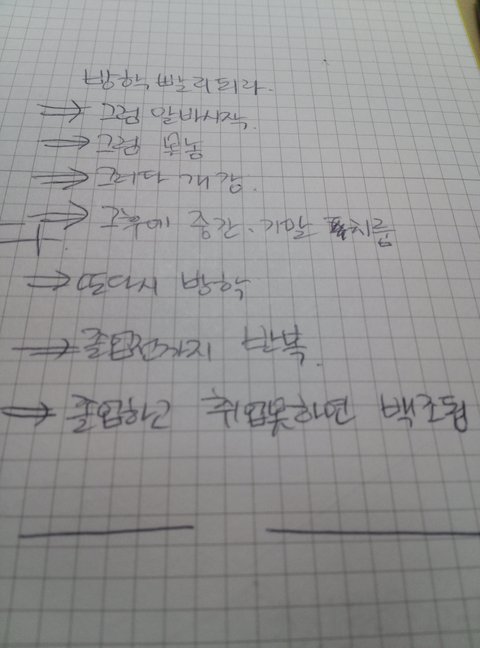 방학 빨리되라.
⇒ 그럼 알바시작.
⇒ 그럼 못놈
⇒ 그러다 개강.
⇒ 그후에 중간·기말 치룸
⇒ 또다시 방학
⇒ 졸업전까지 반복.
⇒ 졸업하고 취업못하면 백조됨